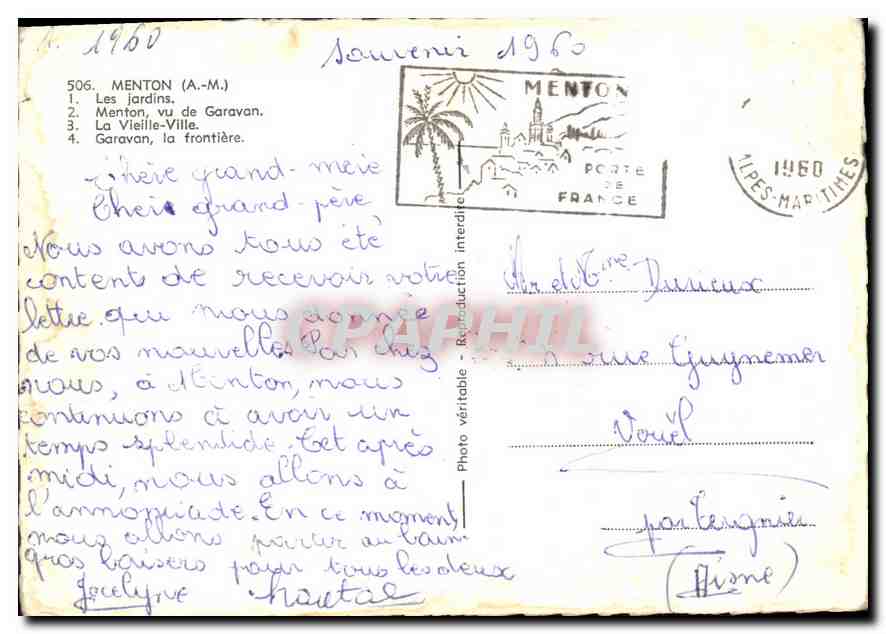 1960
Souvenir 1960
506. MENTON (A.-M.)
1. Les jardins.
2. Menton, vu de Garavan.
3. La Vieille-Ville.
4. Garavan, la frontière.
MENTON
PORTE
DE
FRANCE
1960
ALPES-MARITIMES
Chère grand-mère
Cher grand-père
Nous avons tous été
content de recevoir votre
lettre qui nous donnée
de vos nouvelles. Par chez
nous, à Menton, nous
continuons à avoir un
temps splendide. Cet après
midi, nous allons à
En ce moment
nous allons partir au bain
gros baisers pour tous les deux
Jocelyne
Photo véritable - Reproduction interdite
CPAPHIL
Mr et Mme Durieux
rue Guynemer
Vouël
par Tergnier
(Aisne)